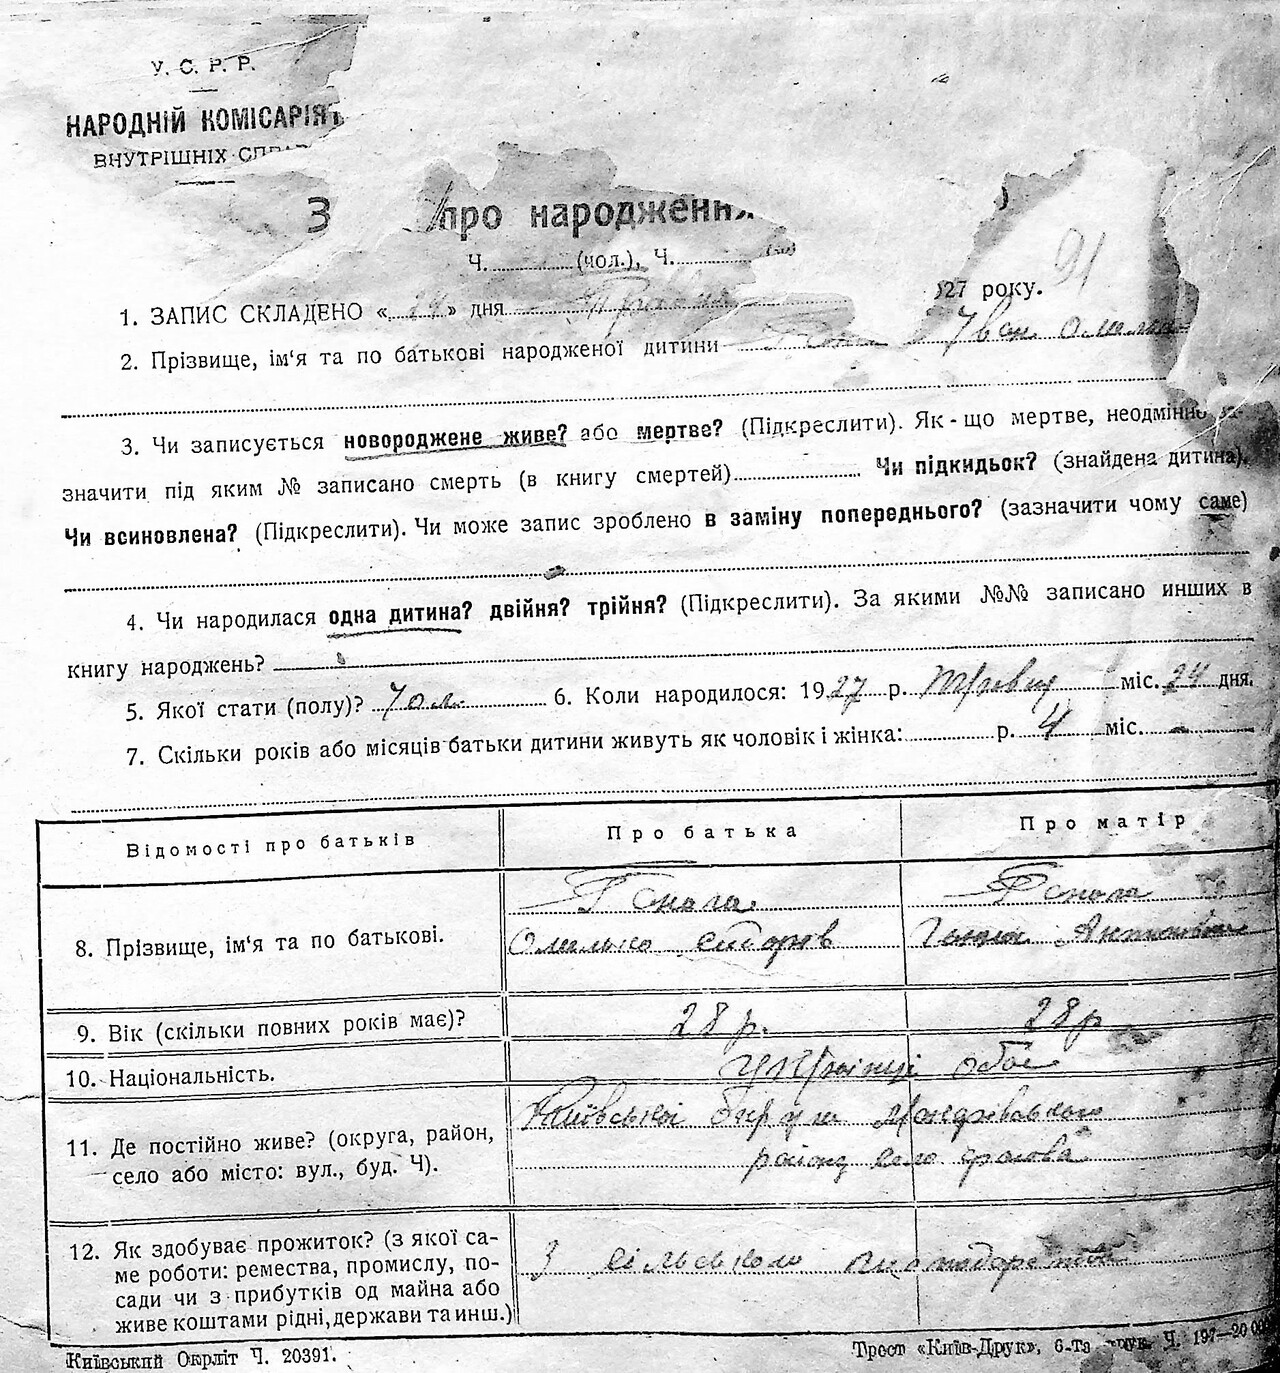 У. С. Р. Р.
НАРОДНІЙ КОМІСАРІЯТ
ВНУТРІШНІХ СПРАВ
З про народження
Ч. (чол.), Ч.
91
1. ЗАПИС СКЛАДЕНО «24» дня Травня 927 року.
2. Прізвище, ім‘я та по батькові народженої дитини Іван
3. Чи записується новороджене живе? або мертве? (Підкреслити). Як-що мертве, неодмінно за-
значити під яким № записано смерть (в книгу смертей) Чи підкидьок? (знайдена дитина).
Чи всиновлена? (Підкреслити). Чи може запис зроблено в заміну попереднього? (зазначити чому саме)
4. Чи народилася одна дитина? двійня? трійня? (Підкреслити). За якими №№ записано инших в
книгу народжень?
5. Якої стати (полу)? Чол. 6. Коли народилося: 1927 р. Травня міс. 24 дня.
7. Скільки років або місяців батьки дитини живуть як чоловік і жінка: р. 4 міс.
Відомості про батьків Про батька Про матір
8. Прізвище, ім‘я та по батькові.
Омелько Сидорів Антонівна
9. Вік (скільки повних років має)? 28 р. 28 р
10. Національність. Українці обоє
11. Де постійно живе? (округа, район,
село або місто: вул., буд. Ч).
Київської Округи
району село
12. Як здобуває прожиток? (з якої са-
ме роботи: ремества, промислу, по-
сади чи з прибутків од майна або
живе коштами рідні, держави та инш.)
З сільського господарства
Київський Окрліт Ч. 20391.
Трест «Київ-Друк», 6-та друк. Ч. 197—20 000